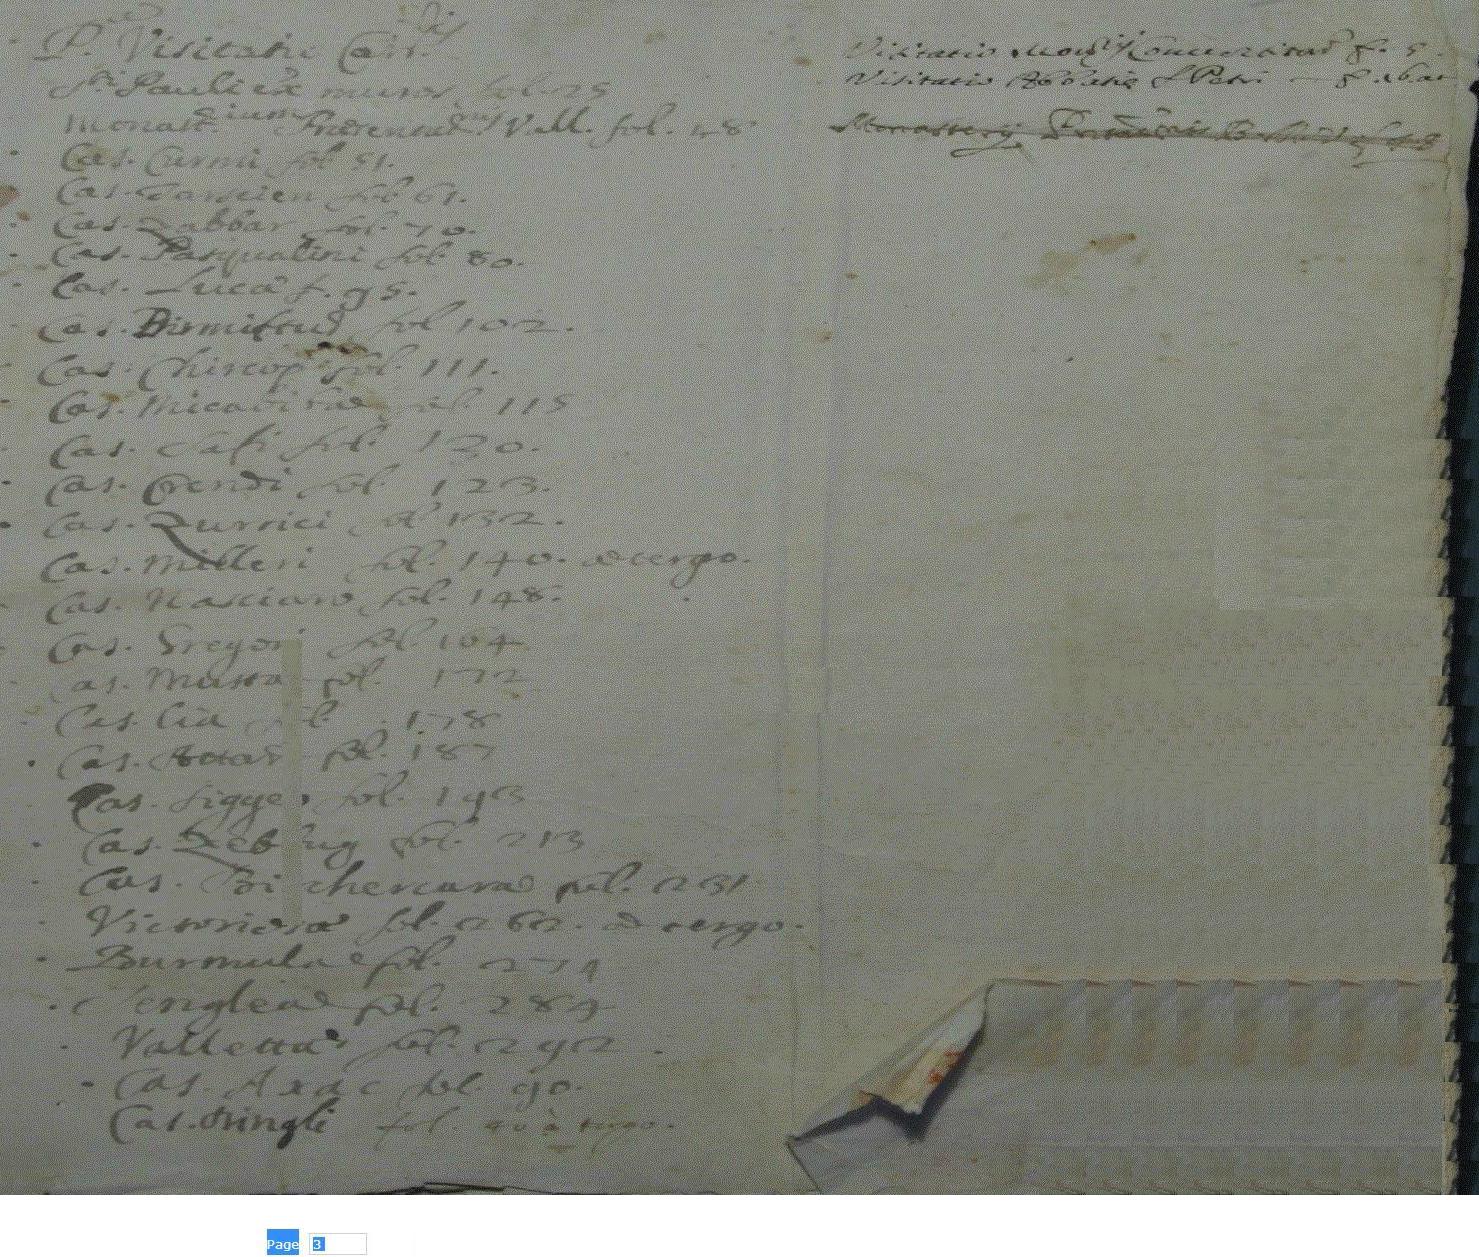 P.ª Visitatio Cas.
S.ti Pauli ex muros fol. 25
Monast. Vall. fol. 48
Cas. Curmi fol 51.
Cas. Tarscien fol 61.
Cas. Zabbar fol. 70.
Cas. Pasqualini fol 80.
Cas. Luca f. 95.
Cas. fol 102.
Cas. Chircop fol. 111.
Cas. Micabiba fol. 115
Cas. Safi fol. 120.
Cas. Crendi fol. 123.
Cas. Zurrici fol 132.
Cas. Milleri fol. 140. a tergo.
Cas. Nasciaro fol. 148.
Cas. Gregori fol. 164
Cas. Musta fol. 172
Cas. Lia fol. 178
Cas. Attard fol. 187
Cas. Siggeu fol. 193
Cas. Zebbug fol. 213
Cas. Birchercara fol. 231
Victoriosa fol. 262. a tergo.
Burmula fol. 274
Senglea fol. 284
Valletta fol. 292.
Cas. Axac fol. 90.
Cas. Dingli fol. 40 à tergo.
Visitatio f. 5.
Visitatio Abbatie S. Petri f.
Monasterij
Page 3